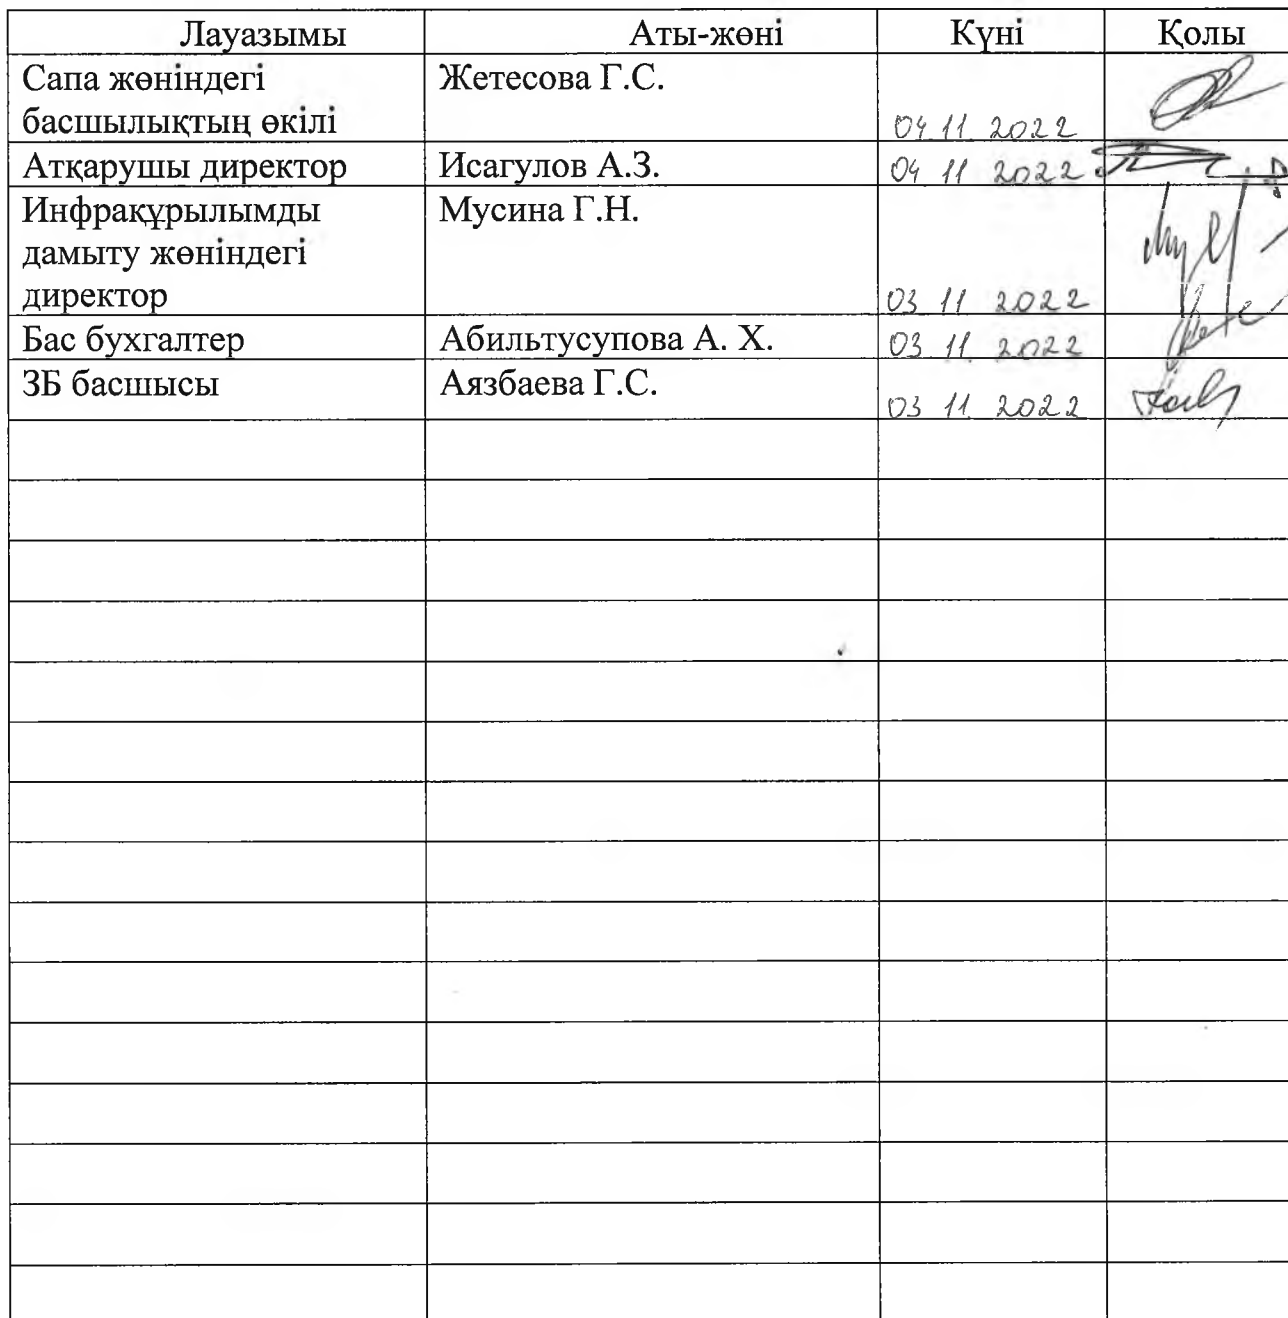 Лауазымы Аты-жөні Күні Қолы
Сапа жөніндегі Жетесова Г.С.
басшылықтың өкілі 04 11 2022
Атқарушы директор Исагулов А.З. 04 11 2022
Инфрақұрылымды Мусина Г.Н.
дамыту жөніндегі
директор 03 11 2022
Бас бухгалтер Абильтусупова А. Х. 03 11 2022
ЗБ басшысы Аязбаева Г.С.
03 11 2022